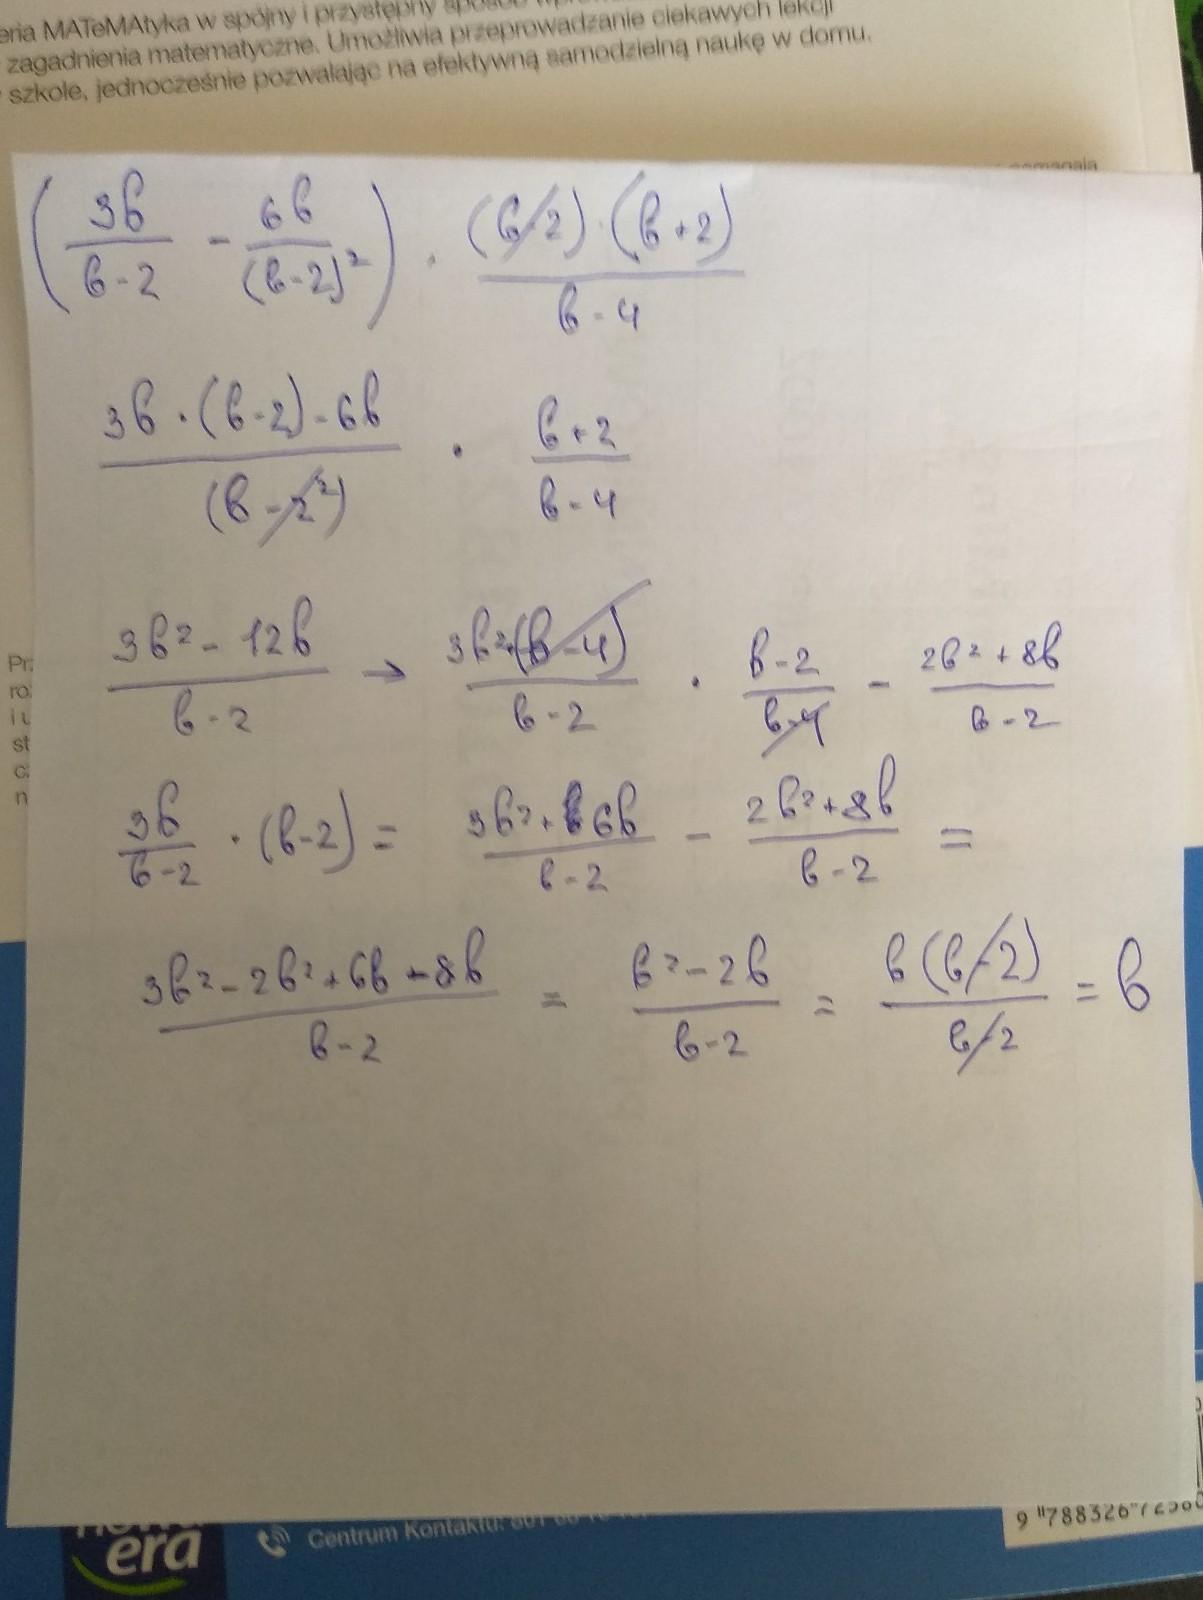 eria MATeMAtyka w spójny i przystępny sposób
zagadnienia matematyczne. Umożliwia przeprowadzanie ciekawych lekcji
szkole, jednocześnie pozwalając na efektywną samodzielną naukę w domu.
pomagają
(3b/(b-2) - 6b/(b-2)²) · (b-2)·(b+2)/(b-4)
(3b·(b-2)-6b)/(b-2²) · (b+2)/(b-4)
(3b²-12b)/(b-2) → 3b²·(b-4)/(b-2) · (b-2)/(b-4) - (2b²+8b)/(b-2)
3b/(b-2) · (b-2) = (3b²+6b)/(b-2) - (2b²+8b)/(b-2) =
(3b²-2b²+6b-8b)/(b-2) = (b²-2b)/(b-2) = b(b-2)/(b-2) = b
nowa
era
Centrum Kontaktu: 801 88 10
9 788326 72580